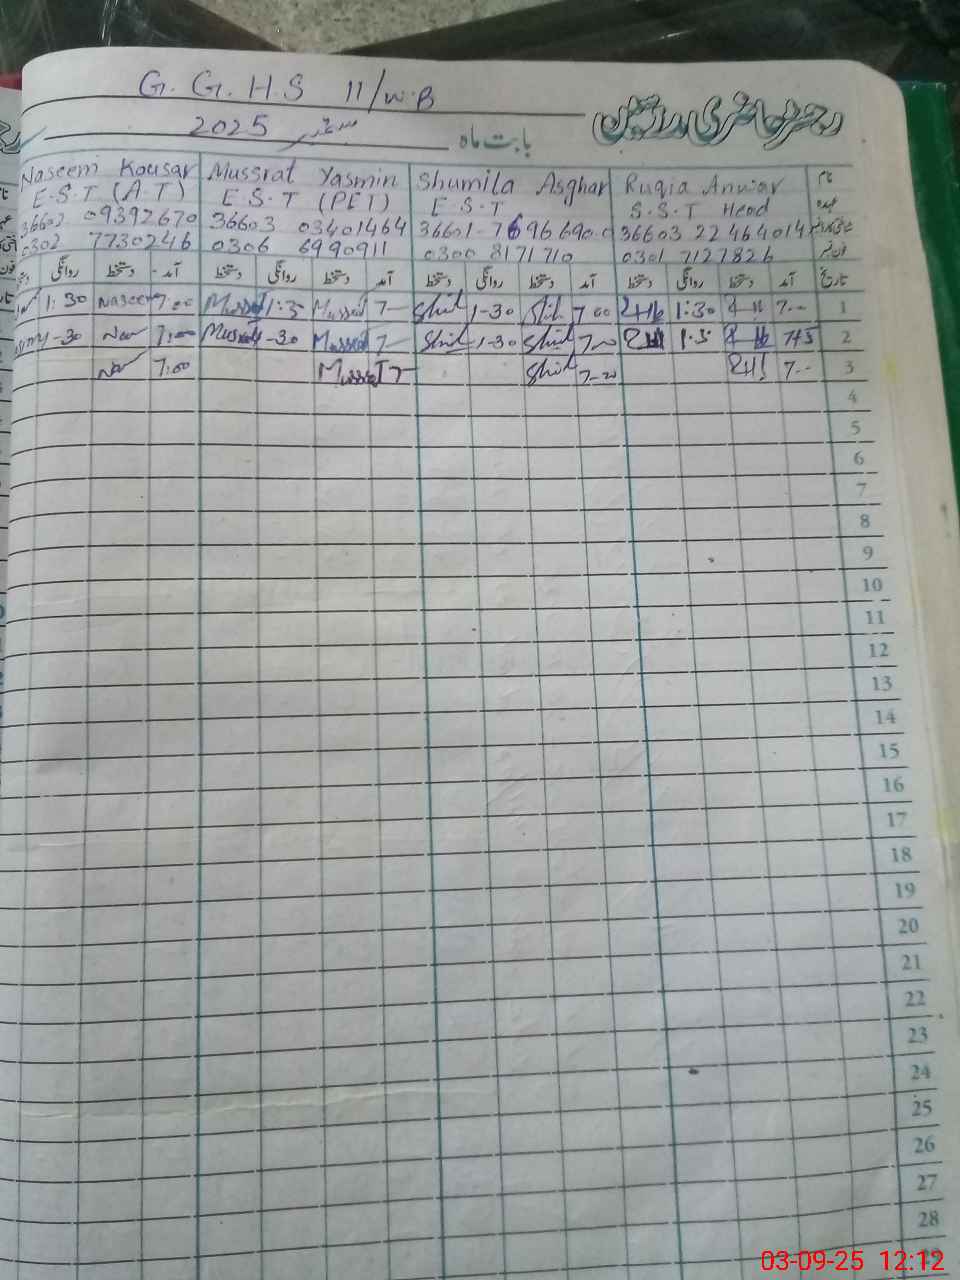 G. G. H. S 11/W.B
رجسٹر حاضری مدرسین
2025 ستمبر بابت ماہ
Naseem Kousar Mussrat Yasmin Shumila Asghar Ruqia Anwar نام
E.S.T (A.T) E.S.T (PET) E.S.T S.S.T Head عہدہ
36602 09392670 36603 03401464 36601-7696690.0 36603 22464014
0302 7730246 0306 6990911 0300 8171710 0301 7127826 فون نمبر
روانگی دستخط آمد دستخط روانگی دستخط آمد دستخط روانگی دستخط آمد دستخط روانگی دستخط آمد تاریخ
1:30 Naseem 7:00 Mussrat 1:3 Mussrat 7- 1-30 7 00 1:30 7.-- 1
-30 7:00 Mussrat 1-30 Mussrat 7- 1-30 1.5 745 2
7:00 Mussrat 7 7-- 3
4
5
6
7
8
9
10
11
12
13
14
15
16
17
18
19
20
21
22
23
24
25
26
27
28
29
03-09-25 12:12